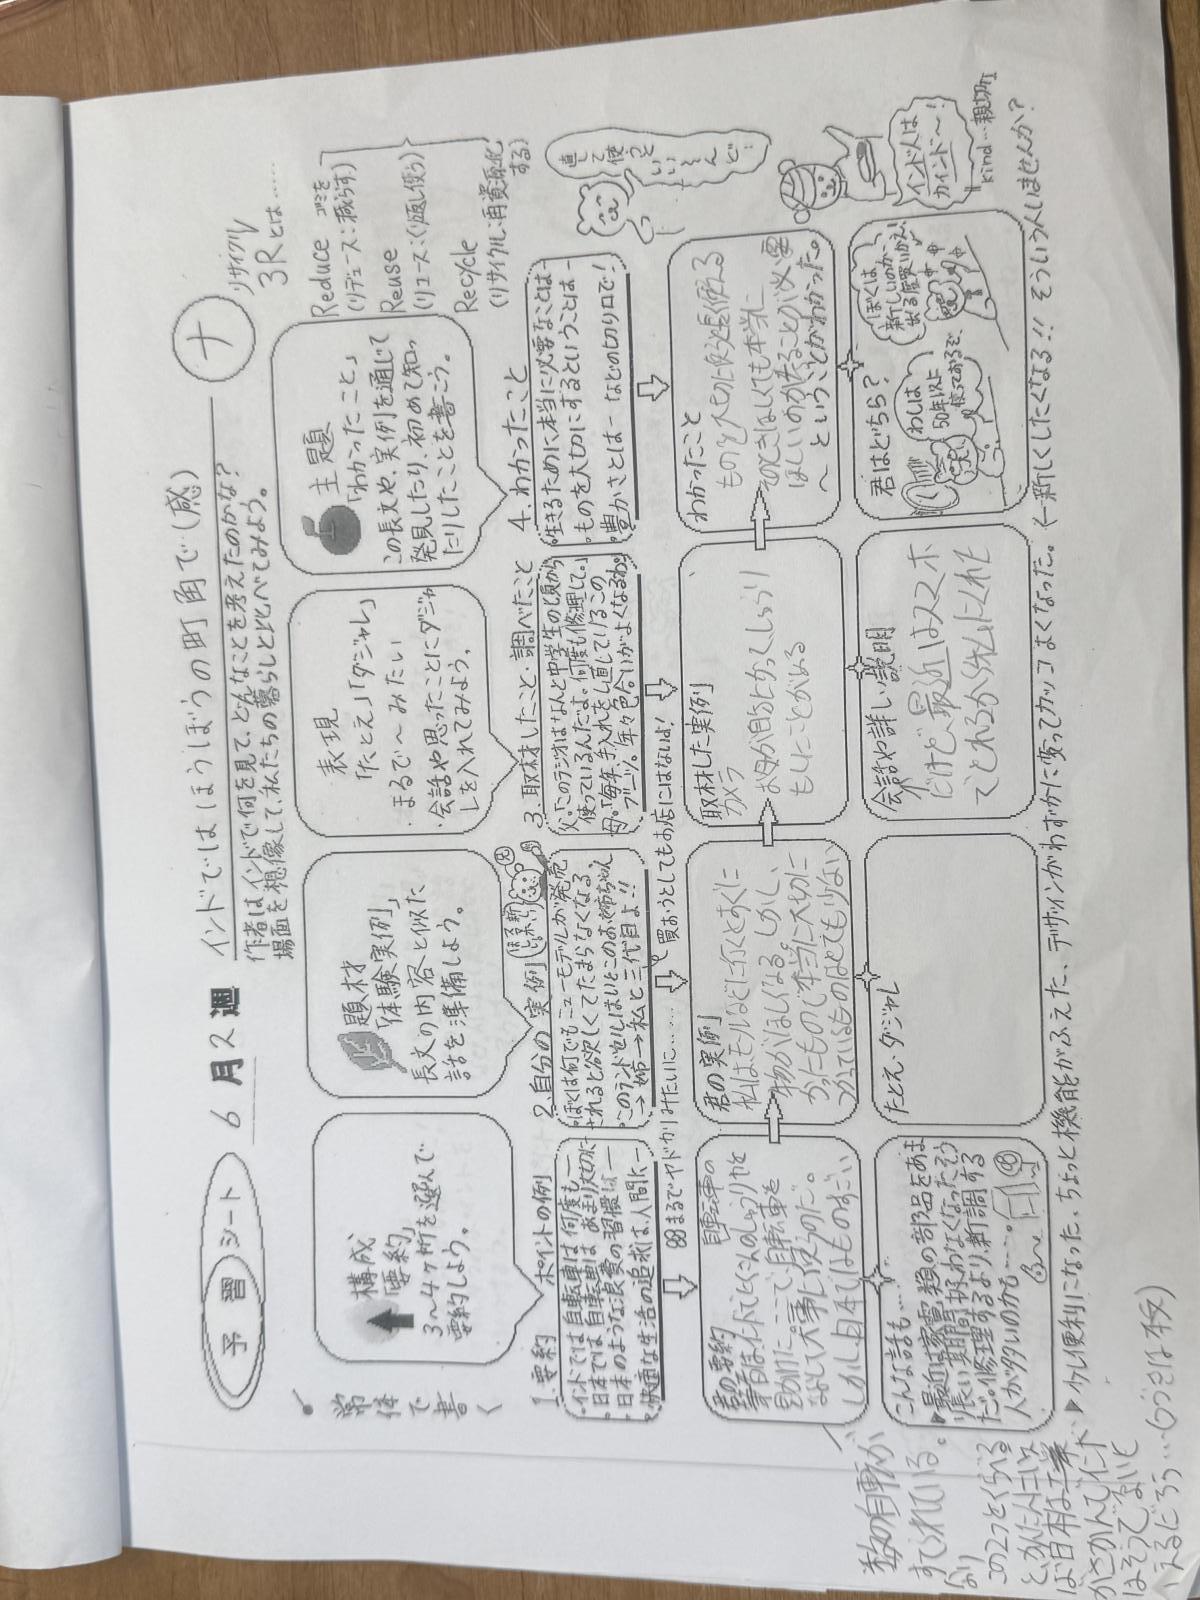 予習シート
6月2週
インドではほうぼうの町角で(感)
ナ
作者はインドで何を見て、どんなことを考えたのかな?
場面を想像して、私たちの暮らしと比べてみよう。
リサイクル
3Rとは……
Reduce ゴミを
(リデュース:減らす)
Reuse
(リユース:くり返し使う)
Recycle
(リサイクル:再資源化
する)
常体で書く
構成
「要約」
3〜4ヶ所を選んで
要約しよう。
題材
「体験実例」
長文の内容と似た
話を準備しよう。
表現
「たとえ」「ダジャレ」
・まるで〜みたい
・会話や思ったことにダジャ
レを入れてみよう。
主題
「わかったこと」
この長文や、実例を通じて
発見したり、初めて知っ
たりしたことを書こう。
1.要約 ポイントの例
・インドでは自転車は何度も―
・日本では自転車は あまり大切に―
・日本のような浪費の習慣は―
・快適な生活の追求は、人間に―
2.自分の実例
・ぼくは何でもニューモデルが発売
されると欲しくてたまらなくなる。
・このランドセルはいとこのお姉ちゃん
→姉→私と三代目よ!!
3.取材したこと・調べたこと
父「このラジオはなんと中学生の頃から
使っているんだよ。何度も修理して。」
母「毎年手入れをし直しているこの
ブーツ。年々色合いがよくなるわ。
4.わかったこと
・生きるために本当に必要なことは―
・ものを大切にするということは―
・豊かさとは― などの切り口で!
直して使うといいんど…
まるでヤドカリみたいに……
買おうとしてもお店にはないよ!
君の要約
筆者はインドでたくさんのしゅうり 自転車の
見かけた。ここで自転車を
なおして大事に使うのだ。
しかし日本ではものすごい
数の自転が
すてられている。
君の実例
私はモールなどに行くとすぐに
物がほしくなる。しかし、
かったもので本当に大切に
つかっているものはとても少ない
取材した実例
カメラ
お母が自分とかってしゅうり
もしたことがある
わかったこと
ものを大切に使うと長く使える
そのときほしくても本当に
ほしいのか考ることが必要
〜ということがわかった。
こんな話も……
▶最近は家電類の部品をあま
り長い期間扱わなくなったそう
だ。修理するより、新調する
人が多いのかも……。
たとえ・ダジャレ
会話や詳しい説明
だけど最近はスマホ
でとれるかく私にくれた
君はどちら?
わしは
50年以上
使っておるぞ。
ぼくは、
新しいのが
出る度買いかえ!
インド人は
カインド〜!
kind…親切な
▶イクし便利になった、ちょっと機能がふえた、デザインがわずかに変ってカッコよくなった。←新しくしたくなる!! そういう人いませんか?
この2つとくらべる
と、かんたんにいえ
ば日本は工業
がさかんでインド
はそうでないと
いえるだろう…(つづきは本文)